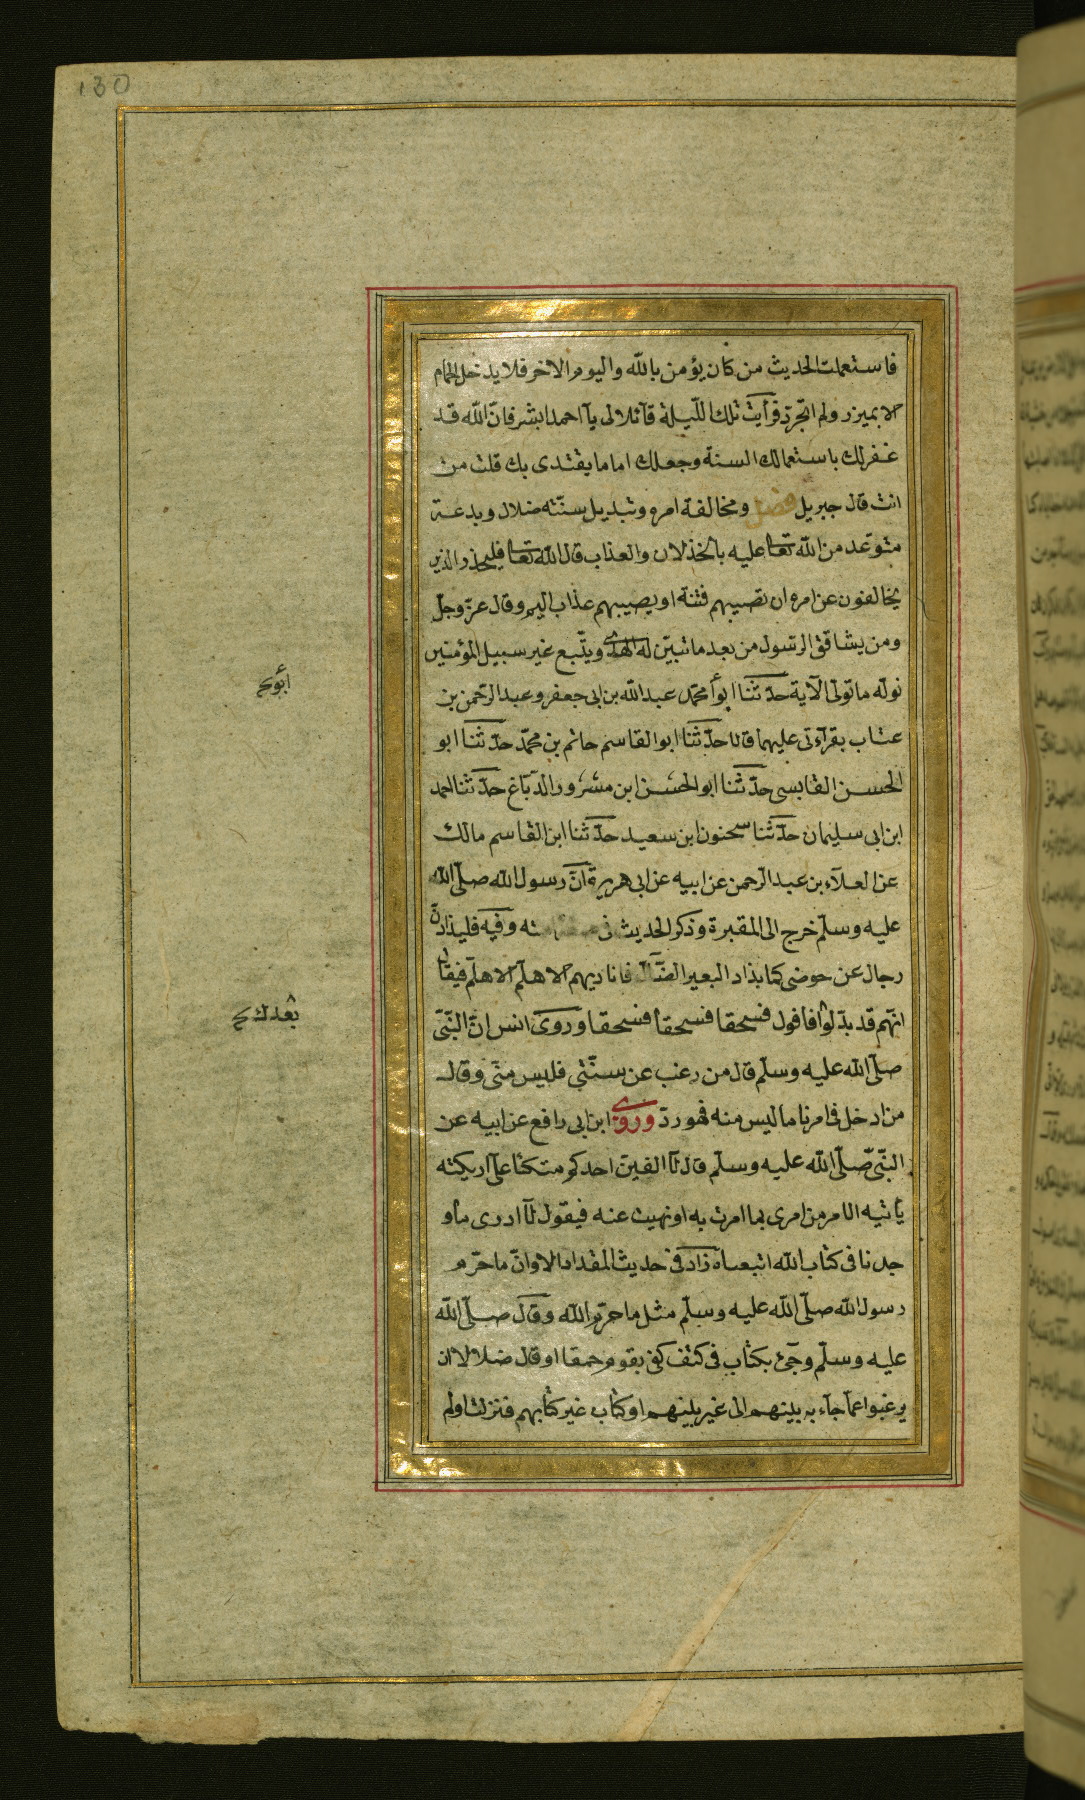 130
فاستعملت الحديث من كان يؤمن بالله واليوم الآخر فلا يدخل الحمام
الا بميزر ولم اتجرّد فرأيت تلك اللّيلة قآئلا لى يآ احمد ابشر فانّ الله قد
غفر لك باستعمالك السنة وجعلك اماما يقتدى بك قلت من
انت قال جبريل فصل ومخالفة امره وتبديل سنّته ضلال وبدعة
متوعّد من الله تعا عليه بالخذلان والعذاب قال الله تعا فليحذر الذين
يخالفون عن امره ان تصيبهم فتنة او يصيبهم عذاب اليم وقال عزّ وجلّ
ومن يشاقق الرسول من بعد ما تبيّن له الهدى ويتّبع غير سبيل المؤمنين
نولّه ما تولّى الآية حدّثنا ابو محمّد عبد الله بن ابى جعفر وعبد الرّحمن بن
ابو صح
عتاب بقرآءتى عليهما قالا حدّثنا ابو القاسم حاتم بن محمّد حدّثنا ابو
الحسن القابسى حدّثنا ابو الحسن ابن مسرور الدبّاغ حدّثنا احمد
ابن ابى سليمان حدّثنا سحنون ابن سعيد حدّثنا ابن القاسم مالك
عن العلآء بن عبد الرّحمن عن ابيه عن ابى هريرة انّ رسول الله صلّى الله
عليه وسلّم خرج الى المقبرة وذكر الحديث فى امته وفيه فليذادنّ
رجال عن حوضى كما يذاد البعير الضّالّ فاناديهم الا هلمّ الا هلمّ فيقال
انّهم قد بدّلوا فاقول فسحقا فسحقا فسحقا وروى انس انّ النّبىّ
بعدك صح
صلّى الله عليه وسلّم قال من رغب عن سنّتى فليس منّى وقال
من ادخل فى امرنا ما ليس منه فهو ردّ وروى ابن ابى رافع عن ابيه عن
النّبىّ صلّى الله عليه وسلّم قال لآ الفينّ احدكم متكئا على اريكته
يأتيه الامر من امرى بما امرت به او نهيت عنه فيقول لآ ادرى ما و
جدنا فى كتاب الله اتبعناه زاد فى حديث المقدام الا وانّ ما حرّم
رسول الله صلّى الله عليه وسلّم مثل ما حرّم الله وقال صلّى الله
عليه وسلّم وجئ بكتاب فى كتف كفى بقوم حمقا او قال ضلالا ان
يرغبوا عمّا جآء به نبيّهم الى غير نبيّهم او كتاب غير كتابهم فنزلت اولم